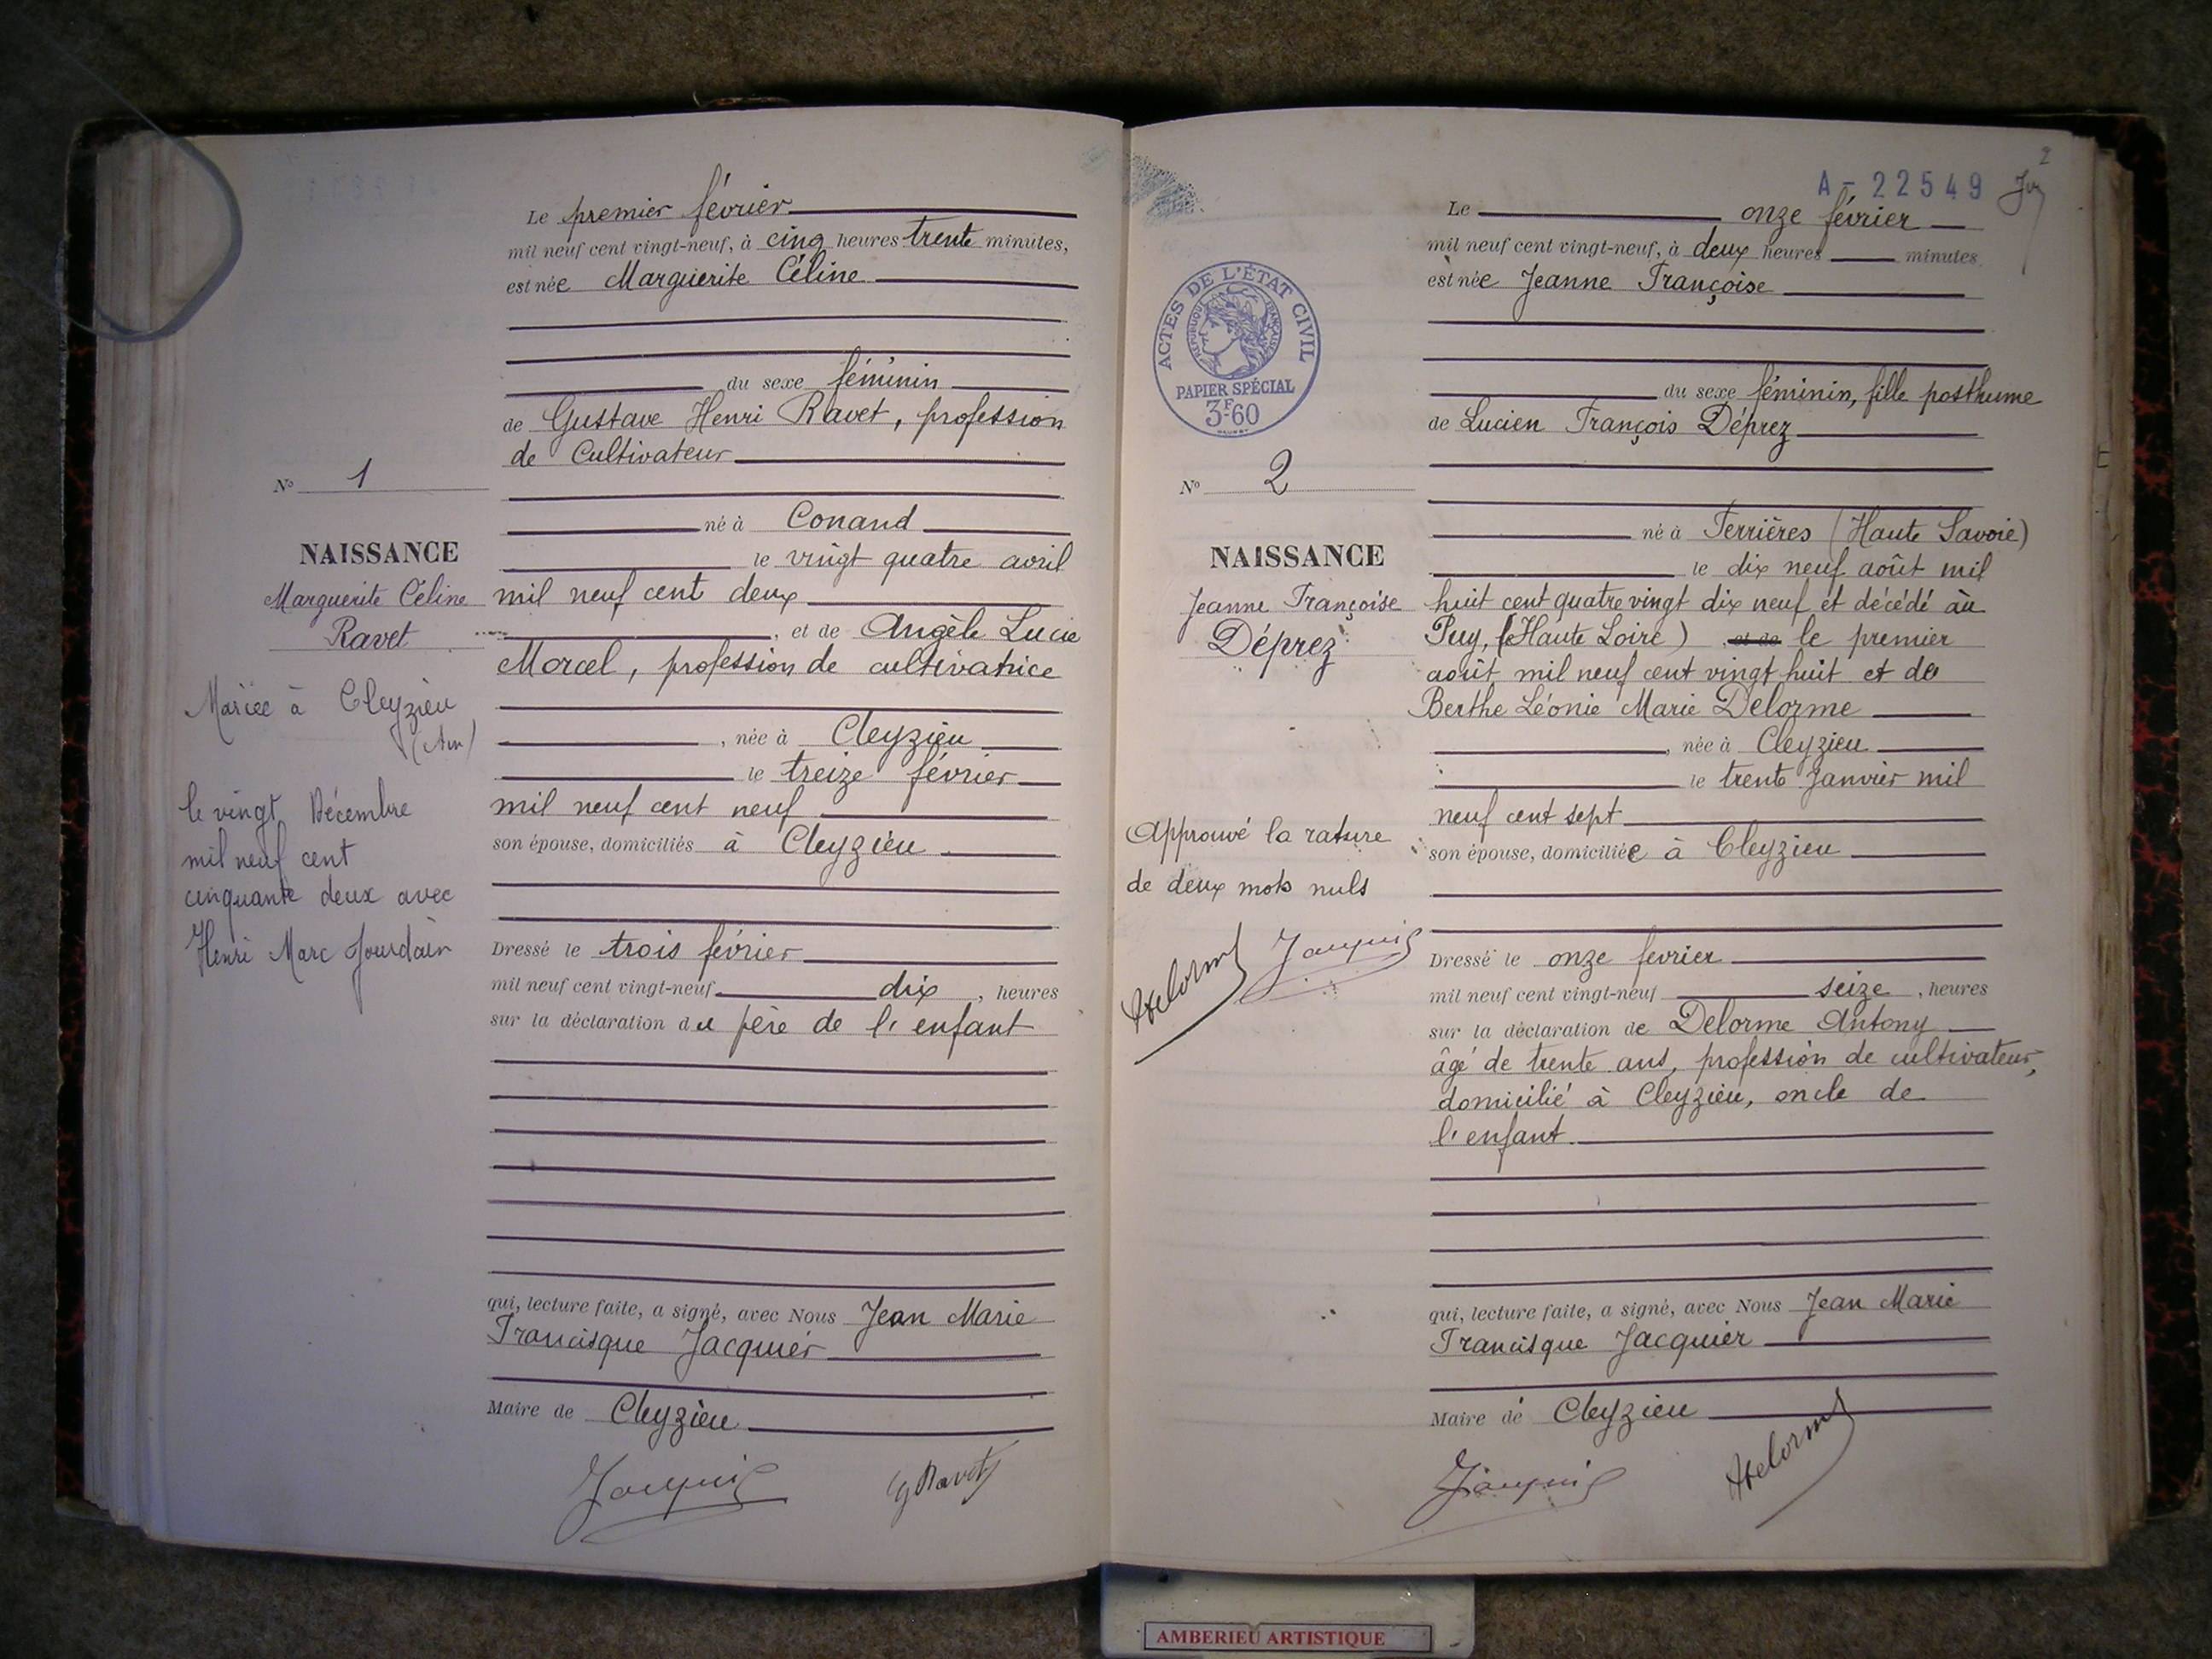 Le premier février
mil neuf cent vingt-neuf, à cinq heures trente minutes,
est née Marguerite Céline
du sexe féminin
de Gustave Henri Ravet, profession
de Cultivateur
né à Conand
le vingt quatre avril
mil neuf cent deux
, et de Angèle Lucie
Morcel, profession de cultivatrice
, née à Cleyzieu
le treize février
mil neuf cent neuf
son épouse, domiciliés à Cleyzieu
Dressé le trois février
mil neuf cent vingt-neuf dix, heures
sur la déclaration du père de l'enfant
qui, lecture faite, a signé, avec Nous Jean Marie
Francisque Jacquier
Maire de Cleyzieu
Jacquier
G Ravet
No 1
NAISSANCE
Marguerite Céline
Ravet
Mariée à Cleyzieu
(Ain)
le vingt Décembre
mil neuf cent
cinquante deux avec
Henri Marc Jourdain
A-22549
2
Le onze février
mil neuf cent vingt-neuf, à deux heures minutes
est née Jeanne Françoise
du sexe féminin, fille posthume
de Lucien François Déprez
né à Ferrières (Haute Savoie)
le dix neuf août mil
huit cent quatre vingt dix neuf et décédé au
Puy, (Haute Loire) et de le premier
août mil neuf cent vingt huit et de
Berthe Léonie Marie Delorme
, née à Cleyzieu
le trente Janvier mil
neuf cent sept
son épouse, domiciliée à Cleyzieu
Dressé le onze fevrier
mil neuf cent vingt-neuf seize, heures
sur la déclaration de Delorme Antony
âgé de trente ans, profession de cultivateur,
domicilié à Cleyzieu, oncle de
l'enfant
qui, lecture faite, a signé, avec Nous Jean Marie
Francisque Jacquier
Maire de Cleyzieu
Jacquier
Delorme
ACTES DE L'ÉTAT CIVIL
RÉPUBLIQUE FRANÇAISE
PAPIER SPÉCIAL
3F-60
No 2
NAISSANCE
Jeanne Françoise
Déprez
Approuvé la rature
de deux mots nuls
Delorme Jacquier
AMBERIEU ARTISTIQUE